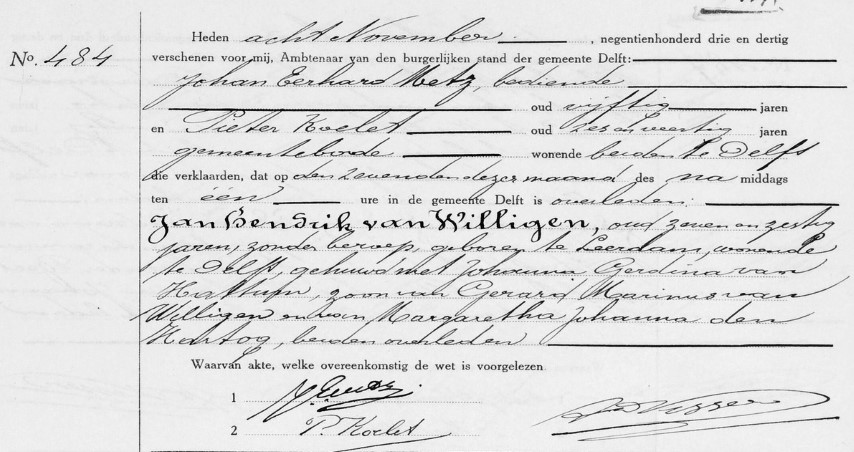 Heden acht November, negentienhonderd drie en dertig
No. 484
verschenen voor mij, Ambtenaar van den burgerlijken stand der gemeente Delft:
Johan Eerhard Metz, bediende
oud vijftig jaren
en Pieter Koelet oud zes en veertig jaren
gemeentebode wonende beiden te Delft
die verklaarden, dat op den zevenden dezer maand des na middags
ten één ure in de gemeente Delft is overleden:
Jan Hendrik van Willigen, oud zeven en zestig
jaren, zonder beroep, geboren te Leerdam, wonende
te Delft, gehuwd met Johanna Gerdina van
Hattum, zoon van Gerard Marinus van
Willigen en van Margaretha Johanna den
Hartog, beiden overleden
Waarvan akte, welke overeenkomstig de wet is voorgelezen
1
2 P. Koelet